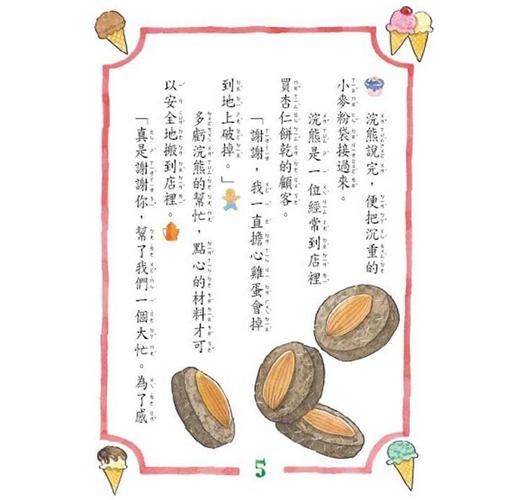 浣熊說完，便把沉重的
小麥粉袋接過來。
浣熊是一位經常到店裡
買杏仁餅乾的顧客。
「謝謝，我一直擔心雞蛋會掉
到地上破掉。」
多虧浣熊的幫忙，點心的材料才可
以安全地搬到店裡。
「真是謝謝你，幫了我們一個大忙。為了感
5